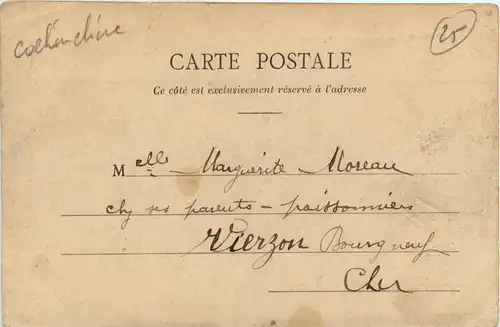 Cochinchine
25
CARTE POSTALE
Ce côté est exclusivement réservé à l'adresse
Melle Marguerite Moreau
chz ses parents - poissonniers
Vierzon Bourgneuf
Cher